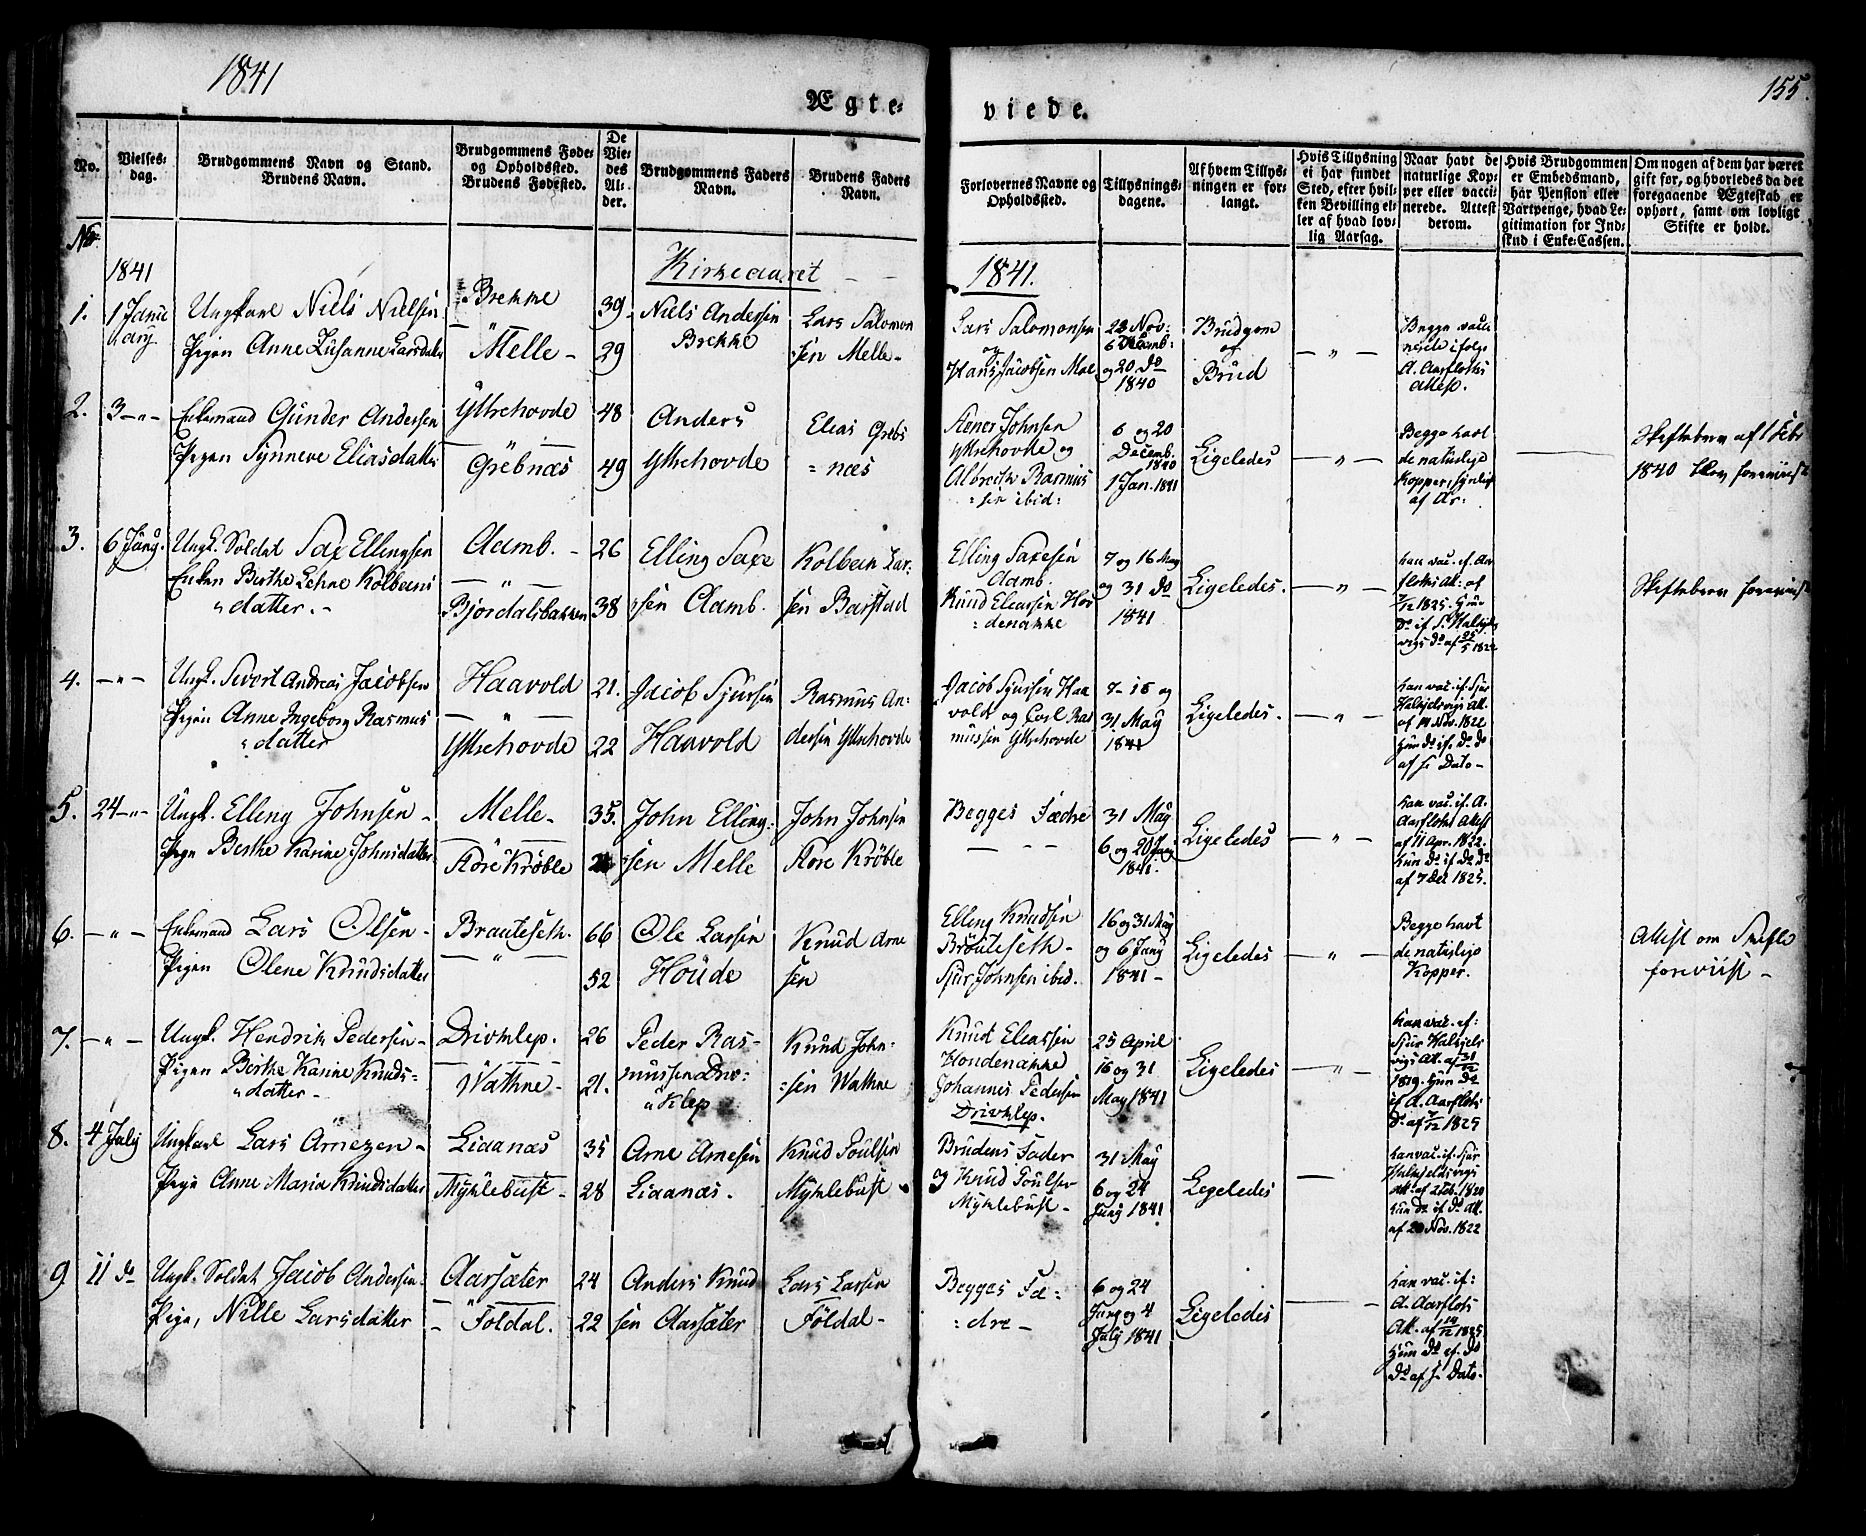 1841
155.
Ægte-
viede.
No.
Vielses-
dag.
Brudgommens Navn og Stand.
Brudens Navn.
Brudgommens Føde-
og Opholdssted.
Brudens Fødested.
De
Vie-
des
Al-
der.
Brudgommens Faders
Navn.
Brudens Faders
Navn.
Forlovernes Navne og
Opholdssted.
Tillysnings-
dagene.
Af hvem Tillys-
ningen er for-
langt.
Hvis Tillysning
ei har fundet
Sted, efter hvil-
ken Bevilling el-
ler af hvad lov-
lig Aarsag.
Naar havt de
naturlige Kop-
per eller vacci-
nerede. Attest
derom.
Hvis Brudgommen
er Embedsmand,
har Pension eller
Vartpenge, hvad Le-
gitimation for Ind-
skud i Enke-Cassen.
Om nogen af dem har været
gift før, og hvorledes da det
foregaaende Ægteskab er
ophørt, samt om lovligt
Skifte er holdt.
No.
1841
Kirkeaaret
1841.
1.
1 Janu
uary
Ungkarl Niels Nielsen
Pigen Anne Susanne Larsdatter
Brekke
"
Melle -
39
29
Niels Andersen
Brekke
Lars Salomon
sen Melle -
Lars Salomonsen
og
Hans Jacobsen Moe
23 Nov:
6 Decemb:
og 20 do
1840
Brudgom
og
Brud
— " —
Begge vacci
nerede ifølge
A. Aarflots
Attest.
2.
3 - " -
Enkemand Gunder Andersen
Pigen Synneve Eliasdatter
Yttrehovde
Grebnæs
48
49
Anders
Yttrehovde
Elias Greb
= næs
Johnsen
Yttrehovde og
Albreith Rasmus
= sen ibid:
6 og 20
Decemb.
1840
1 Jan. 1841
Ligeledes
— " —
Begge havt
de naturlige
Kopper, synlige
af Ar:
Skiftebrev af 1 Febr
1840 blev foreviist
3.
6 Juny.
Ungk. Soldat Saxe Ellingsen
Enken Berthe Lehne Kolbeens
" datter. -
Aamb. -
— " —
Bjørdalsbakken
26
38
Elling Saxe
sen Aamb.
Kolbeen Lar-
sen Barstad
Elling Saxesen
Aamb.
Knud Eleasen Hov
= denakke
7 og 16 May
og 31 do
1841
Ligeledes.
— " —
han vac. if. Aar
flots Att: af
7/12 1825. Hun
do if S. Halkjels
vigs do af 25/5 1822
Skiftebrev foreviist
4.
— " —
Ungk. Sivert Andreas Jacobsen
Pigen Anne Ingeborg Rasmus
" datter
Haavold
— " —
Yttrehovde
21.
22
Jacob Sjursen
Haavold
Rasmus An-
dersen Yttrehovde
Jacob Sjursen Haa
vold og Carl Ras
mussen Yttrehovde
7 - 16 og
31 May
1841
Ligeledes.
— " —
han vac. if. Sjur
Halkjelsvigs Att.
af 14 Nov. 1822
Hun do if. do do
af s. Dato -
5.
24 - " -
Ungk. Elling Johnsen -
Pigen Berthe Karine Johnsdatter
Melle -
Aore Krøble
35.
John Elling-
sen Melle
John Johnsen
Aore Krøble
Begges Fædre
— - -
31 May
6 og 20 Juny
1841.
Ligeledes
— " —
han vac. if. A.
Aarflots Attest
af 11 Apr. 1822.
Hun do if do do
af 7 Dec 1825.
6.
— " —
Enkemand Lars Olsen -
Pigen Olene Knudsdatter
Brauteseth.
— " —
66
52
Ole Larsen
Houde
Knud Arne
sen
Elling Knudsen
Brauteseth -
Sjur Johnsen ibid.
16 og 31 May
og 6 Juny
1841 -
Ligeledes
— " —
Begge havt
de naturlige
Kopper.
Attest om Skifte
foreviist -
7.
— " —
Ungk. Hendrik Pedersen -
Pigen Berthe Karine Knuds-
" datter -
Drivklep.
— " —
Wathne -
26
21.
Peder Ras-
mussen Driv-
" klep
Knud John-
= sen Wathne
Knud Eleassen
Hovdenakke
Johannes Pedersen
Drivklep.
25 April
16 og 31
May 1841
Ligeledes
— " —
han vac. if:
Sjur Halkjels
vigs Att. af 31/12
1819. Hun do
if A. Aarflots
do af 7/12 1825
8.
4 July
Ungkarl Lars Arnezen -
Pigen Anne Maria Knudsdatter
Liaanæs
Myklebust -
35
28
Arne Arnesen
Liaanæs.
Knud Poulsen
Myklebust
Brudens Fader
og Knud Poulsen
Myklebust -
31 May
6 og 24
Juny 1841
Ligeledes
—
han vac. if. Sjur
Halkjelsvigs
Att. af 2 Feb. 1820
Hun do if do Att.
af 20 Nov. 1822
9
11 do
Ungk. Soldat Jacob Andersen
Pigen, Nille Larsdatter
Aarsæter
— " —
- Foldal.
24
22
Anders Knud
sen Aarsæter
Lars Larsen
Foldal -
Begges Fæ-
= dre -
6 og 24
Juny og 4
July 1841
Ligeledes
—
han vac. if:
A. Aarflots
Att. af 14/12 1825
Hun do if. do
do af s. Dato.